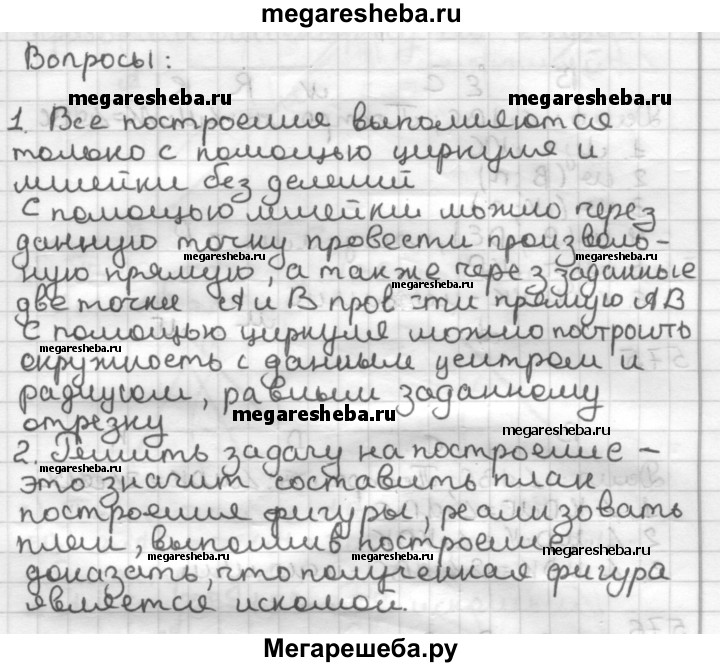 megaresheba.ru
Вопросы:
megaresheba.ru megaresheba.ru
1. Все построения выполняются
только с помощью циркуля и
линейки без делений
С помощью линейки можно через
данную точку провести произволь-
megaresheba.ru megaresheba.ru
ную прямую, а также через заданные
две точки А и В провести прямую АВ
С помощью циркуля можно построить
megaresheba.ru megaresheba.ru
окружность с данным центром и
радиусом, равным заданному
megaresheba.ru
отрезку
megaresheba.ru
2. Решить задачу на построение –
megaresheba.ru
это значит составить план
построения фигуры, реализовать
план, выполнив построение,
megaresheba.ru megaresheba.ru
доказать, что полученная фигура
является искомой.
Мегарешеба.ру